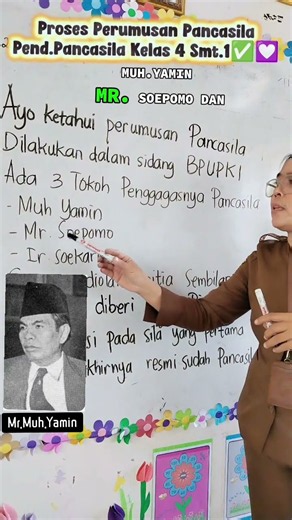 Proses Perumusan Pancasila
Pend.Pancasila Kelas 4 Smt.1✅💜
MUH.YAMIN
MR. SOEPOMO DAN
Ayo ketahui perumusan Pancasila
Dilakukan dalam sidang BPUPKI
Ada 3 Tokoh Penggagasnya Pancasila
- Muh Yamin
- Mr. Soepomo
- Ir. Soekar
diola itia Sembilan
diberi
si pada sila yang pertama
khirnya resmi sudah Pancasil
Mr,Muh,Yamin